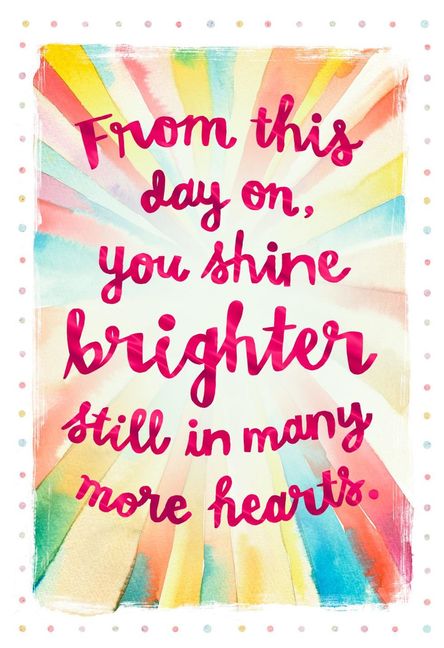 From this
day on,
you shine
brighter
still in many
more hearts.